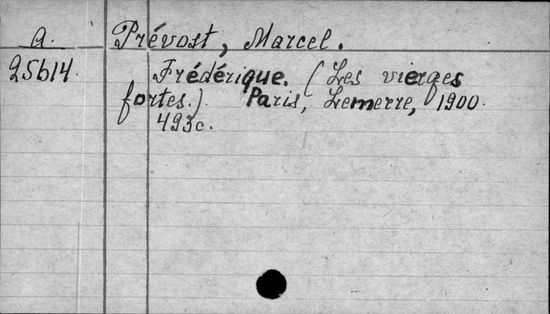 A. Prévost, Marcel.
25614 Frédérique. (Les vierges
fortes.) Paris, Lemerre, 1900.
493c.